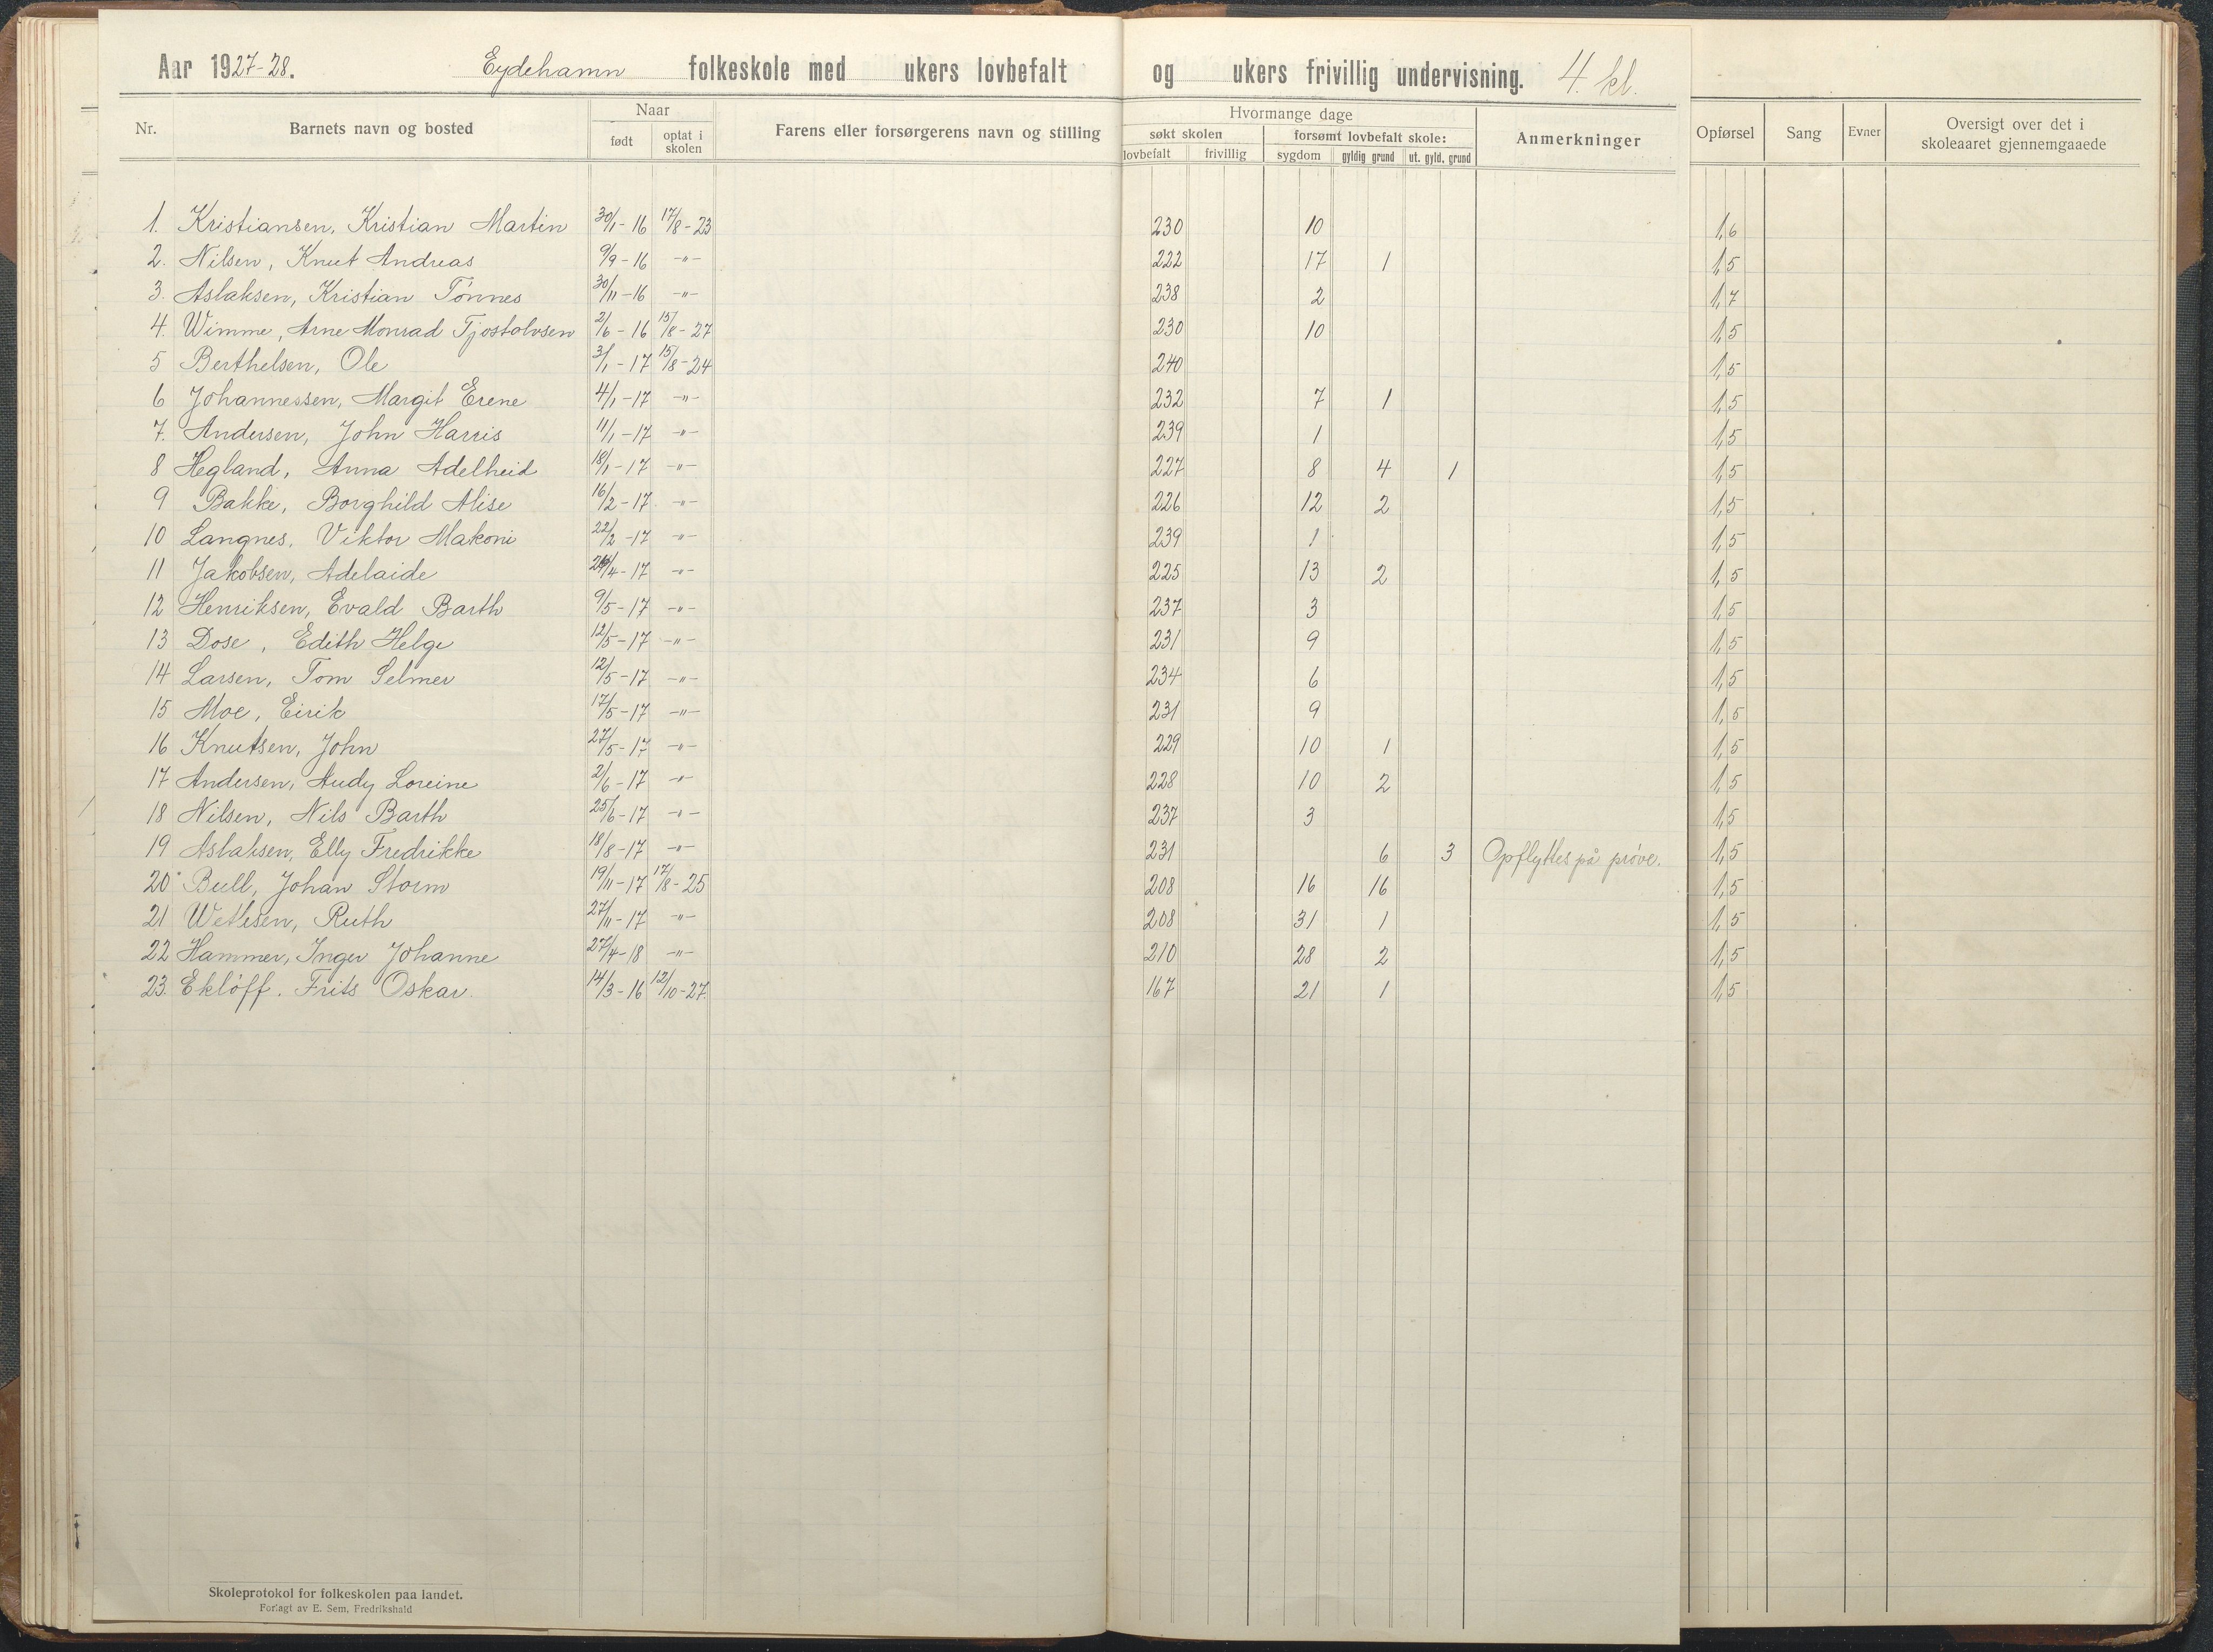 Aar 1927-28. Eydehamn folkeskole med ukers lovbefalt og ukers frivillig undervisning. 4. kl.
Nr. Barnets navn og bosted Naar født optat i skolen Farens eller forsørgerens navn og stilling Hvormange dage søkt skolen lovbefalt frivillig forsømt lovbefalt skole: sygdom gyldig grund ut. gyld. grund Anmerkninger Opførsel Sang Evner Oversigt over det i skoleaaret gjennemgaaede
1. Kristiansen, Kristian Martin 30/1-16 17/8-23 230 10 1,6
2. Nilsen, Knut Andreas 9/9-16 -"- 222 17 1 1,5
3. Aslaksen, Kristian Tönnes 30/11-16 -"- 238 2 1,7
4. Wimme, Arne Monrad Tjostolvsen 2/6-16 15/8-27 230 10 1,5
5 Berthelsen, Ole 3/1-17 15/8-24 240 1,5
6 Johannessen, Margit Erene 4/1-17 -"- 232 7 1 1,5
7. Andersen, John Harris 11/1-17 -"- 239 1 1,5
8 Hegland, Anna Adelheid 18/1-17 -"- 227 8 4 1 1,5
9 Bakke, Borghild Alise 16/2-17 -"- 226 12 2 1,5
10 Langnes, Viktor Makoni 22/2-17 -"- 239 1 1,5
11 Jakobsen, Adelaide 24/4-17 -"- 225 13 2 1,5
12 Henriksen, Evald Barth 9/5-17 -"- 237 3 1,5
13 Dose, Edith Helge 12/5-17 -"- 231 9 1,5
14 Larsen, Tom Selmer 12/5-17 -"- 234 6 1,5
15 Moe, Eirik 17/5-17 -"- 231 9 1,5
16 Knutsen, John 27/5-17 -"- 229 10 1 1,5
17 Andersen, Audy Loreine 2/6-17 -"- 228 10 2 1,5
18 Nilsen, Nils Barth 25/6-17 -"- 237 3 1,5
19 Aslaksen, Elly Fredrikke 18/8-17 -"- 231 6 3 Opflyttes på pröve. 1,5
20 Bull, Johan Storm 19/11-17 17/8-25 208 16 16 1,5
21 Wetlesen, Ruth 27/11-17 -"- 208 31 1 1,5
22 Hammer, Inger Johanne 27/4-18 -"- 210 28 2 1,5
23. Eklöff. Frits Oskar. 14/3-16 12/10-27. 167 21 1 1,5
Skoleprotokol for folkeskolen paa landet.
Forlagt av E. Sem, Fredrikshald